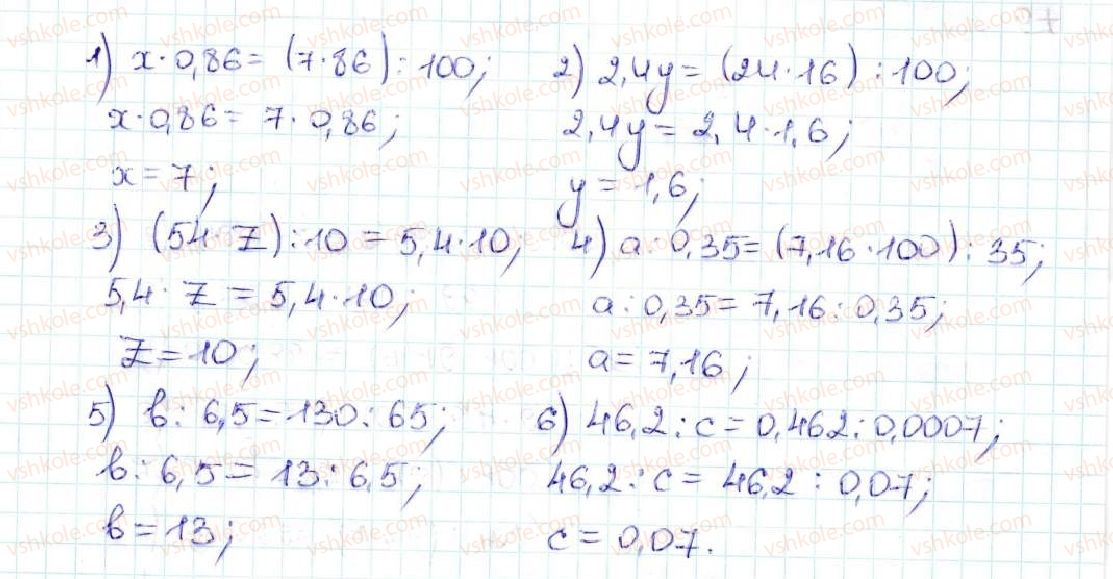 1) x·0,86 = (7·86):100;
x·0,86 = 7·0,86;
x = 7;
2) 2,4y = (24·16):100;
2,4y = 2,4·1,6;
y = 1,6;
3) (54·z):10 = 5,4·10;
5,4·z = 5,4·10;
z = 10;
4) a:0,35 = (7,16·100):35;
a:0,35 = 7,16:0,35;
a = 7,16;
5) b:6,5 = 130:65;
b:6,5 = 13:6,5;
b = 13;
6) 46,2:c = 0,462:0,0007;
46,2:c = 46,2:0,07;
c = 0,07.
vshkole.com